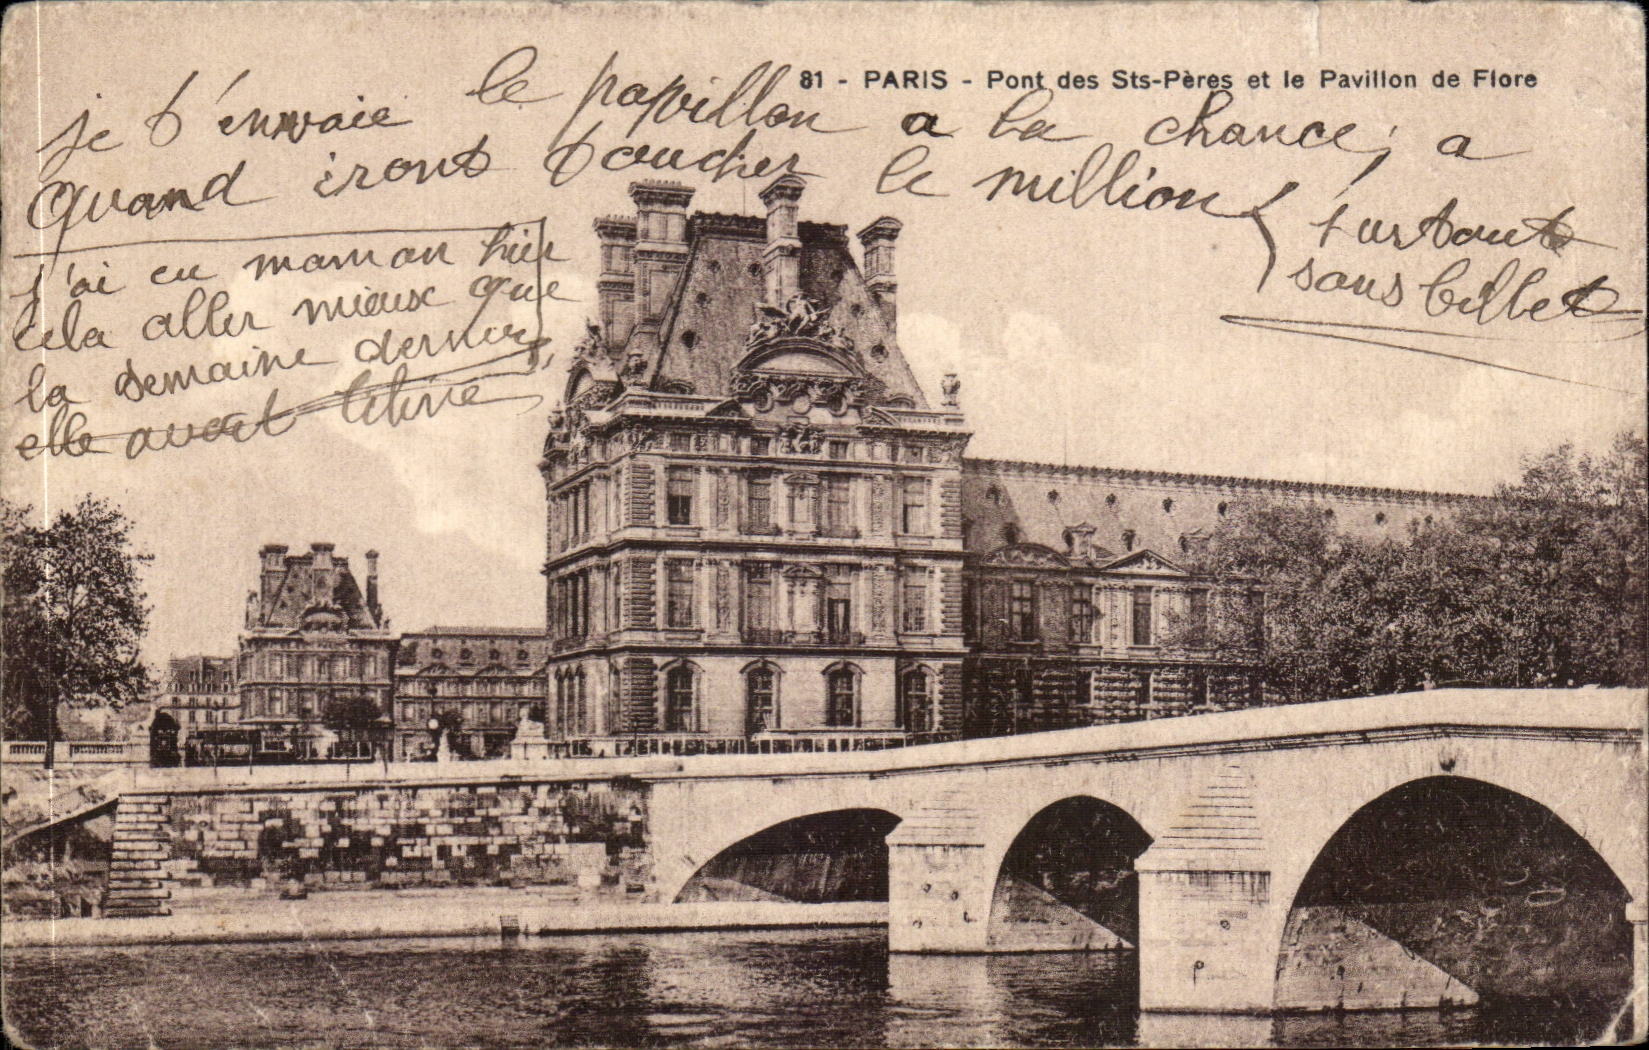 81 - PARIS - Pont des Sts-Pères et le Pavillon de Flore
je t'envoie le papillon a la chance, a
quand irons toucher le million
surtout
sans billet
j'ai eu maman hier
cela aller mieux que
la semaine dernier
elle avait